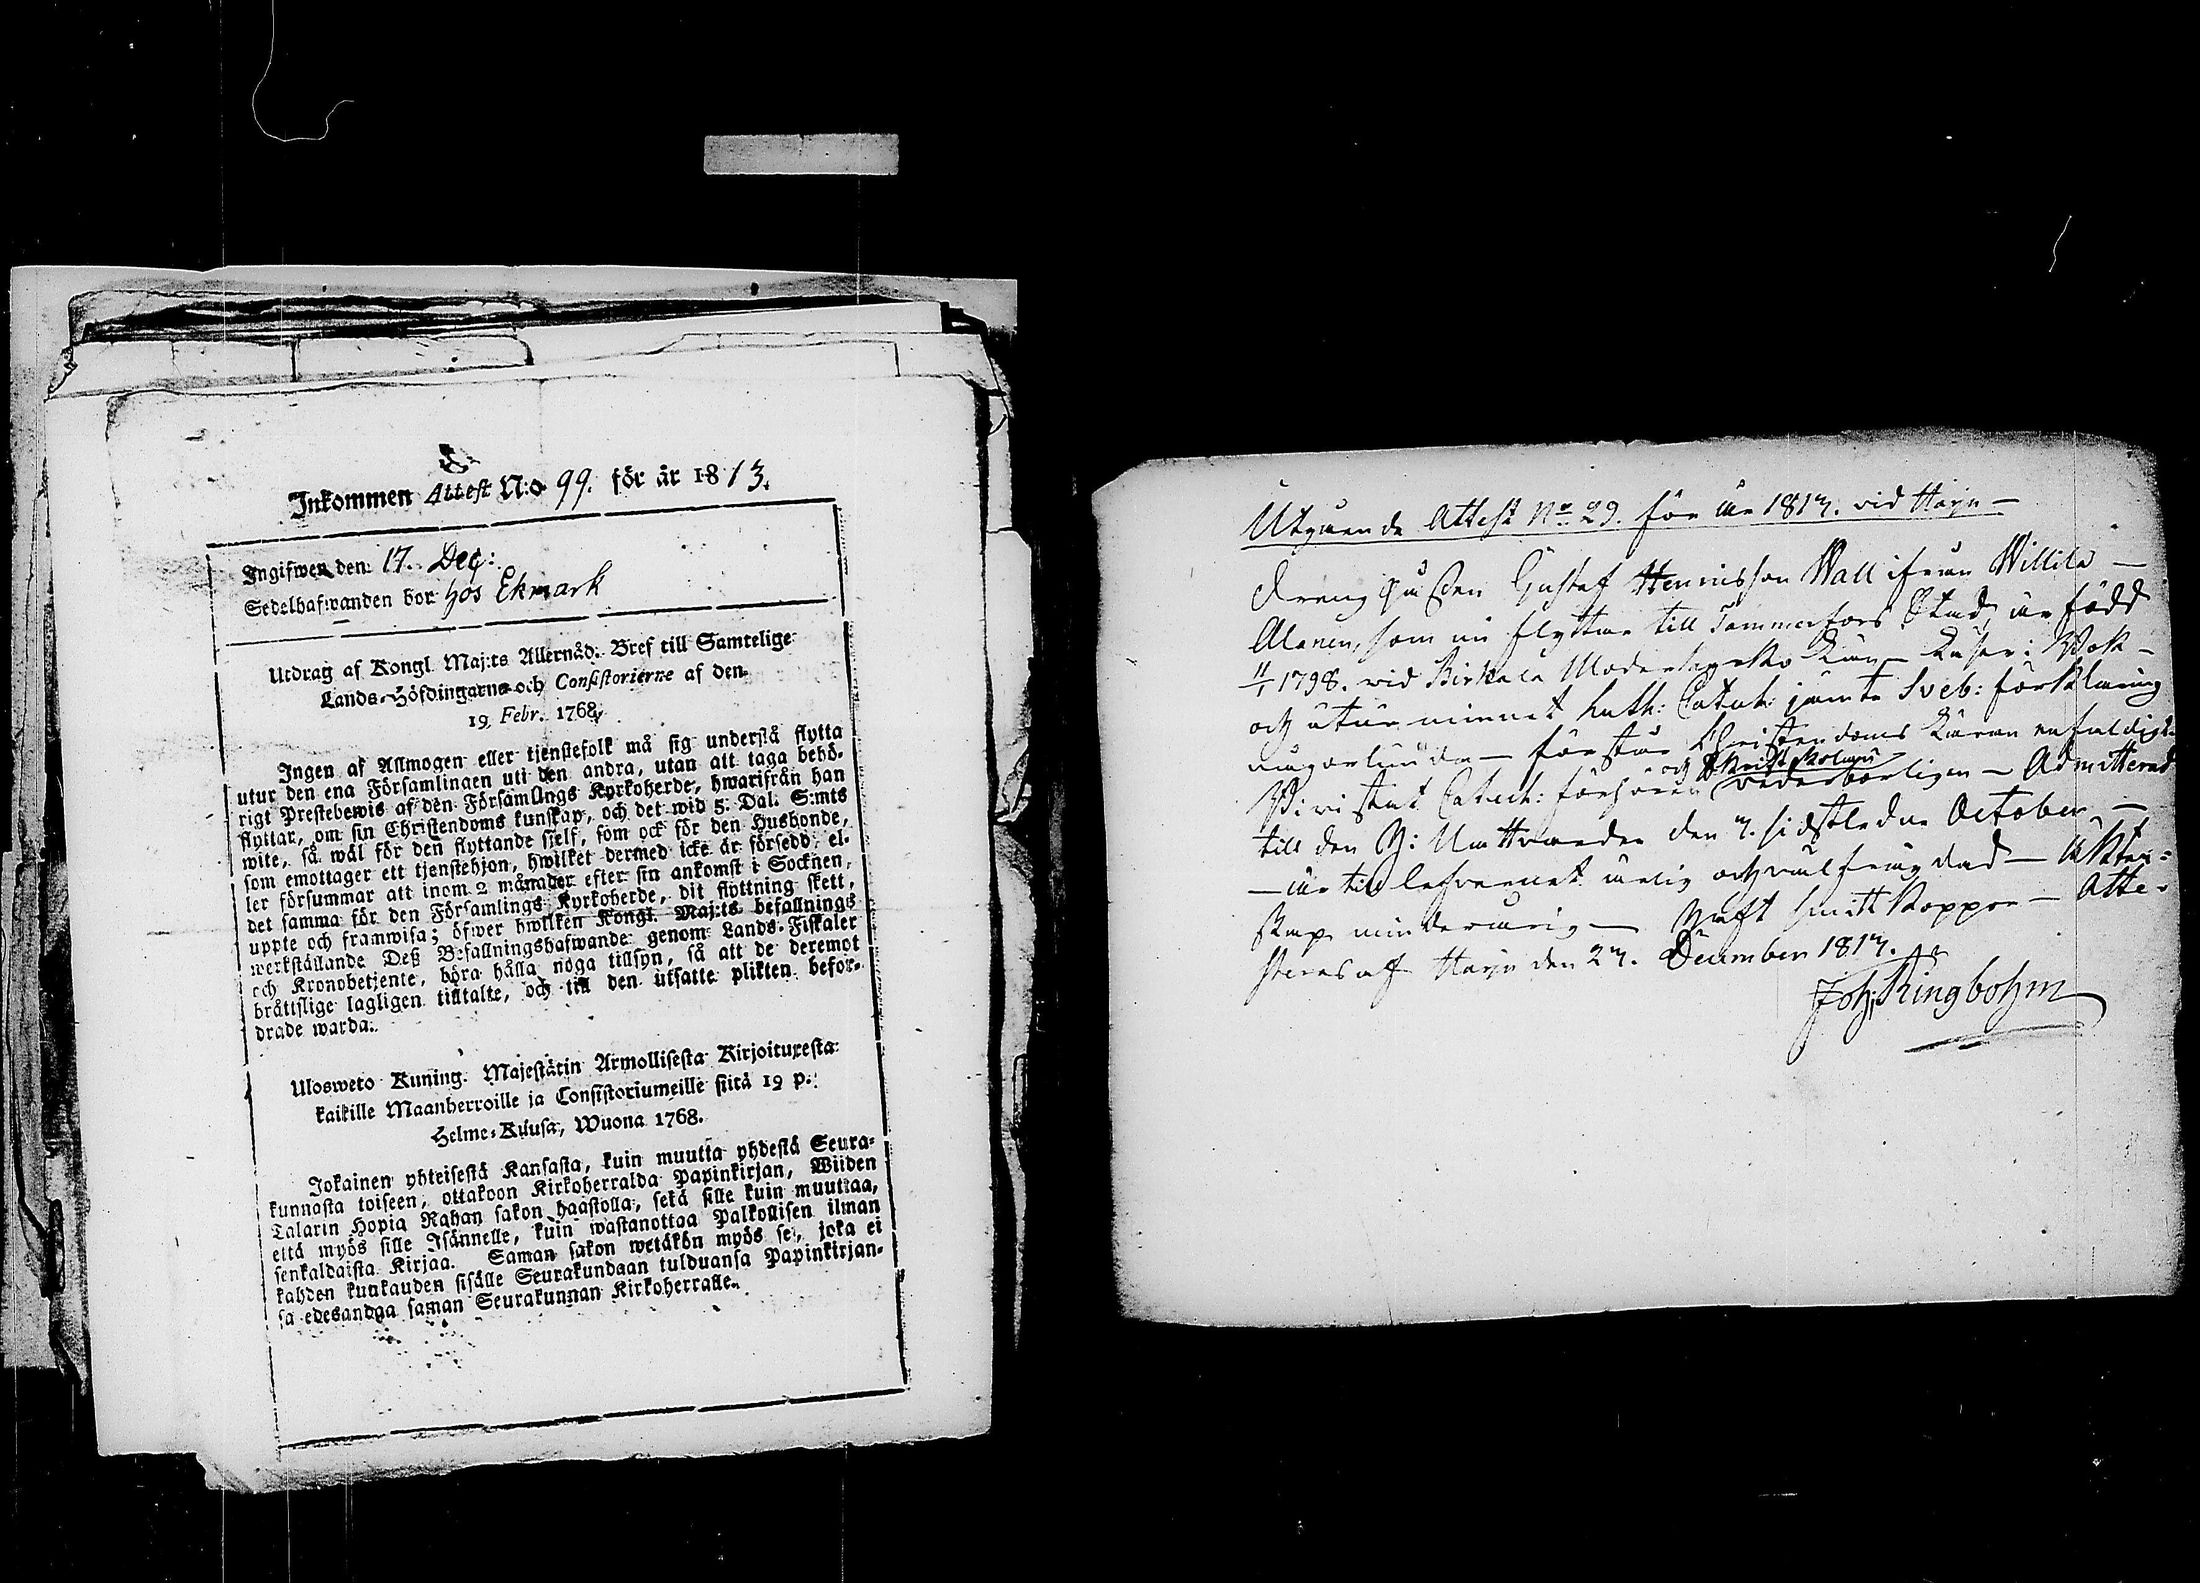 Inkommen Attest N:o 99. för år 1813.
Ingifwen den 17. Dec:
Sedelhafwanden bor hos Ekmark
Utdrag af Kongl. Maj:ts Allernåd. Bref till Samtelige
Lands-Höfdingarne och Consistorierne af den
19 Febr. 1768.
Ingen af Allmogen eller tjenstefolk må sig understå flytta
utur den ena Församlingen uti den andra, utan att taga behö-
rigt Prestebewis af den Församlings Kyrkoherde, hwarifrån han
flyttar, om sin Christendoms kunskap, och det wid 5 Dal: S:mts
wite, så wäl för den flyttande sjelf, som ock för den Husbonde,
som emottager ett tjenstehjon, hwilket dermed icke är försedd, el-
ler försummar att inom 2 månader efter sin ankomst i Socknen,
det samma för den Församlings Kyrkoherde, dit flyttning skett,
uppte och framwisa; öfwer hwilken Kongl. Maj:ts befallnings
werkställande Deß Befallningshafwande genom Lands-Fiskaler
och Kronobetjente, böra hålla noga tillsyn, så att de deremot
bråttslige lagligen tilltalte, och till den utsatte plikten befor-
drade warda.
Ulosweto Kuning. Majestätin Armollisesta Kirjoituxesta
kaikille Maanherroille ja Consistoriumeille siitä 19 p.
Helme-Kuusa, Wuona 1768.
Jokainen yhteisestä Kansasta, kuin muutta yhdestä Seura-
kunnasta toiseen, ottakoon Kirkoherralda Papinkirjan, Wiiden
Talarin Hopia Rahan sakon haastolla, sekä sille kuin muuttaa,
että myös sille Isännelle, kuin wastanottaa Palkollisen ilman
senkaldaista Kirjaa. Saman sakon wetäkön myös se, joka ei
kahden kuukauden sisälle Seurakundaan tulduansa Papinkirjan-
sa edesandaa saman Seurakunnan Kirkoherralle.
Utgående Attest No 29. för år 1813. vid Harju
Dreng Gåssen Gustaf Henricsson Wall ifrån Willila
Alanen, som nu flyttar till Tammerfors Stad, är född
11/1 1798. vid Birkala Moderkyrko Läser i Bok
och utur minnet Luth: Catech: jämte Sveb: förklaring
någorlunda förstår Christendoms Läran enfaldigt
Bivistat Catech: förhören och Skriftskolan vederbörligen Admitterad
till den H: Nattvarden den 3. sidstledne October
är till lefvernet ärlig och välfrägdad Ekten-
skap minderårig Haft smittkoppor Atte-
steras af Harju den 23. December 1813.
Joh: Ringbohm